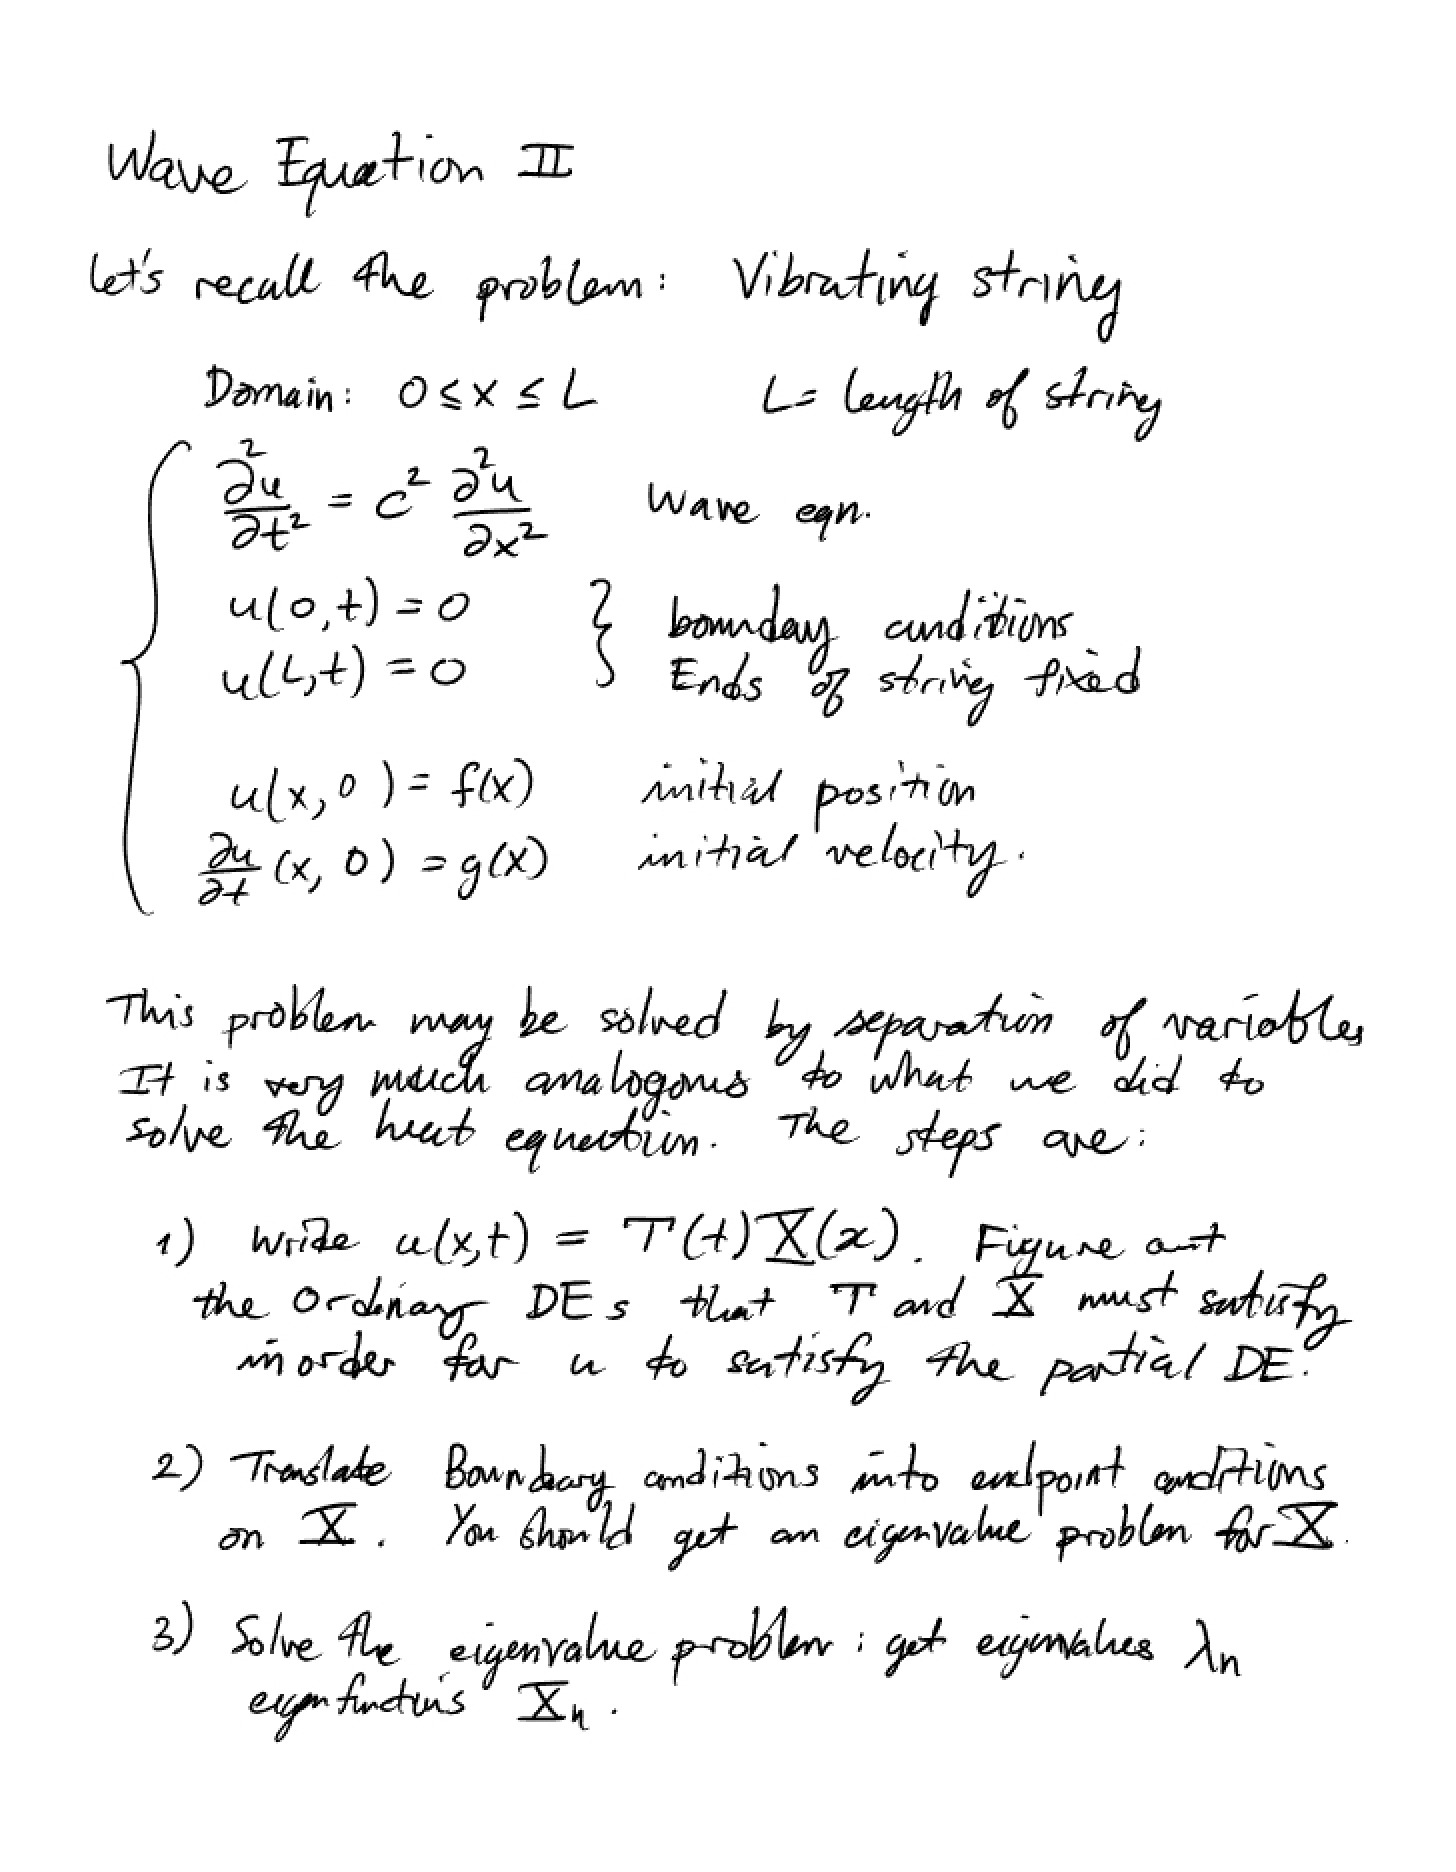 Wave Equation II
Let's recall the problem: Vibrating string
Domain: 0 ≤ x ≤ L L = length of string
∂²u/∂t² = c² ∂²u/∂x² Wave eqn.
u(0,t) = 0 } boundary conditions
u(L,t) = 0 Ends of string fixed
u(x,0) = f(x) initial position
∂u/∂t (x, 0) = g(x) initial velocity.
This problem may be solved by separation of variables
It is very much analogous to what we did to
solve the heat equation. The steps are:
1) Write u(x,t) = T(t)X(x). Figure out
the Ordinary DEs that T and X must satisfy
in order for u to satisfy the partial DE.
2) Translate Boundary conditions into endpoint conditions
on X. You should get an eigenvalue problem for X.
3) Solve the eigenvalue problem: get eigenvalues λn
eigenfunctions Xn.